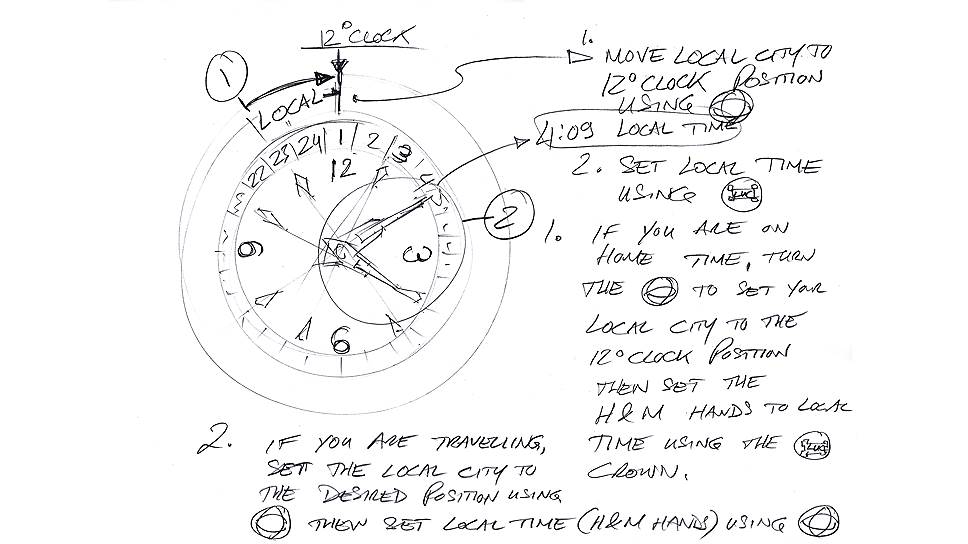 12°CLOCK
1
LOCAL
22 23 24 1 2 3 4 5
12
9 3
6
2
1.
MOVE LOCAL CITY TO
12°CLOCK POSITION
USING
4:09 LOCAL TIME
2. SET LOCAL TIME
USING
1. IF YOU ARE ON
HOME TIME, TURN
THE TO SET YOUR
LOCAL CITY TO THE
12°CLOCK POSITION
THEN SET THE
H&M HANDS TO LOCAL
TIME USING THE
CROWN.
2. IF YOU ARE TRAVELLING,
SET THE LOCAL CITY TO
THE DESIRED POSITION USING
THEN SET LOCAL TIME (H&M HANDS) USING